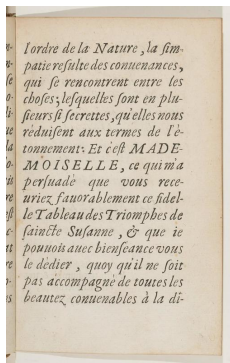 l'ordre de la Nature, la sim-
patie resulte des conuenances,
qui se rencontrent entre les
choses; lesquelles sont en plu-
sieurs si secrettes, qu'elles nous
reduisent aux termes de l'é-
tonnement: Et c'est MADE-
MOISELLE, ce qui m'a
persuadé que vous rece-
uriez fauorablement ce fidel-
le Tableau des Triomphes de
saincte Susanne, & que ie
pouuois auec bienseance vous
le dédier, quoy qu'il ne soit
pas accompagné de toutes les
beautez conuenables à la di-